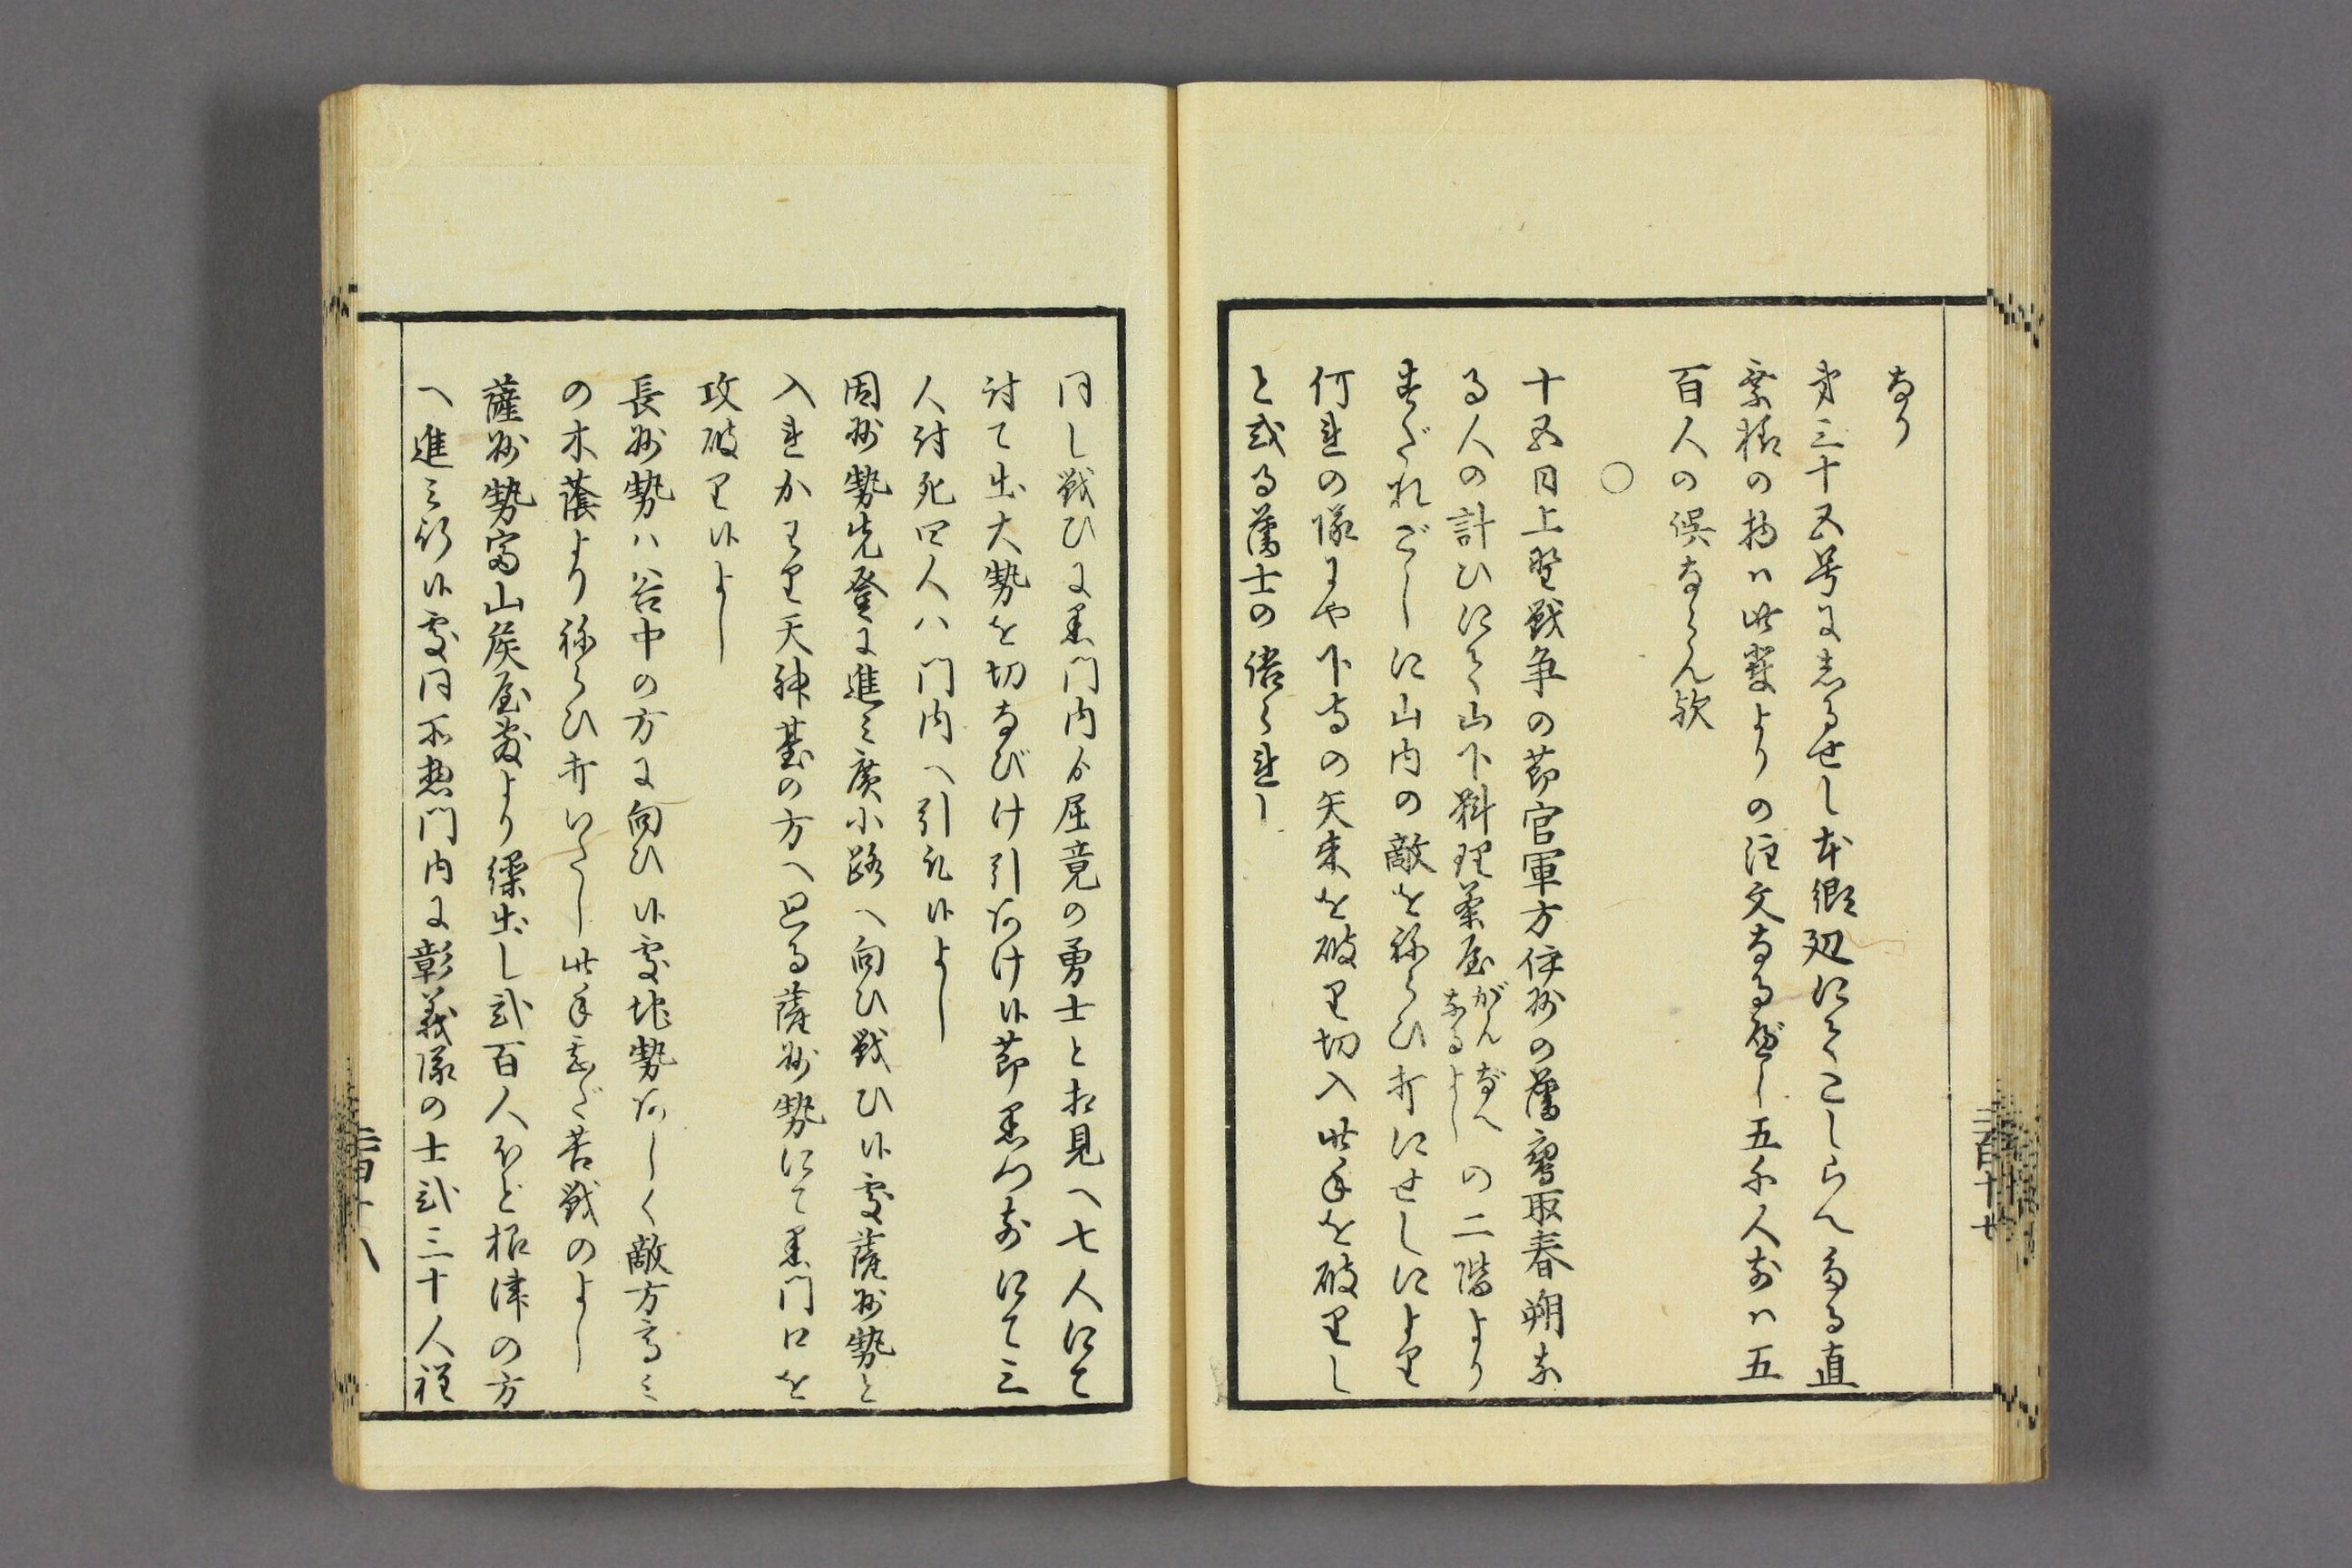 なり
第三十五号に志るせし本郷辺にてこしらへたる直
垂様の物ハ此輩よりの注文なる歟し五千人前ハ五
百人の誤ならん歟
○
十五日上野戦争の節官軍方伊州の藩鳥取春朔な
る人の計ひにて山下料理茶屋がんなべなるよしの二階より
すだれごしに山内の敵をねらひ打にせしにより
何れの隊にや下寺の矢来を破り切入此手を破りし
と或る藩士の話られし
三百十七
同し戦ひに黒門内ゟ屈竟の勇士と相見へ七人にて
討て出大勢を切なびけ引あけ候節黒門前にて三
人討死四人ハ門内へ引取候よし
因州勢先登に進ミ広小路へ向ひ戦ひ候処薩州勢と
入れかわり天神台の方へ廻る薩州勢にて黒門口を
攻破り候よし
長州勢ハ谷中の方に向ひ候処地勢あしく敵方高ミ
の木蔭よりねらひ打いたし此手甚だ苦戦のよし
薩州勢富山侯屋敷より繰出し弐百人ほど根津の方
へ進ミ行候処同所惣門内に彰義隊の士弐三十人程
三百十八